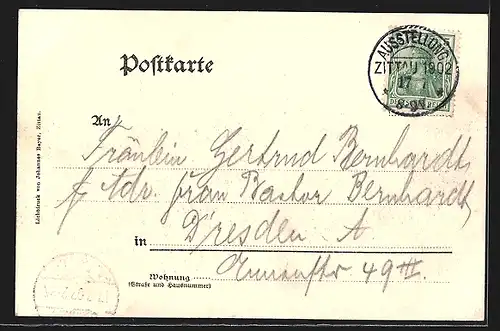 AUSSTELLUNG
ZITTAU 1902
Postkarte
Lichtdruck von Johannes Beyer, Zittau.
An
Fräulein Gertrud Bernhardt,
Adr. Frau Pastor Bernhardt
Dresden A
in
49 III.
Wohnung
(Straße und Hausnummer)